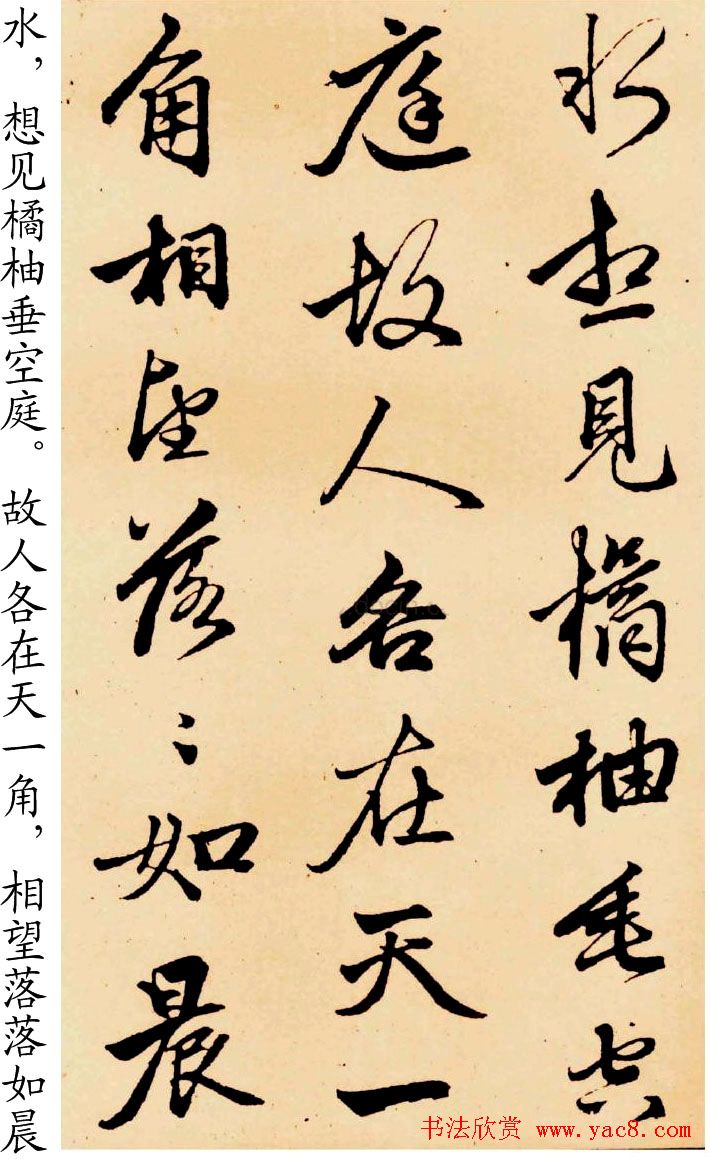 水想見橘柚垂空
庭故人各在天一
角相望落〻如晨
水，想见橘柚垂空庭。故人各在天一角，相望落落如晨
书法欣赏 www.yac8.com